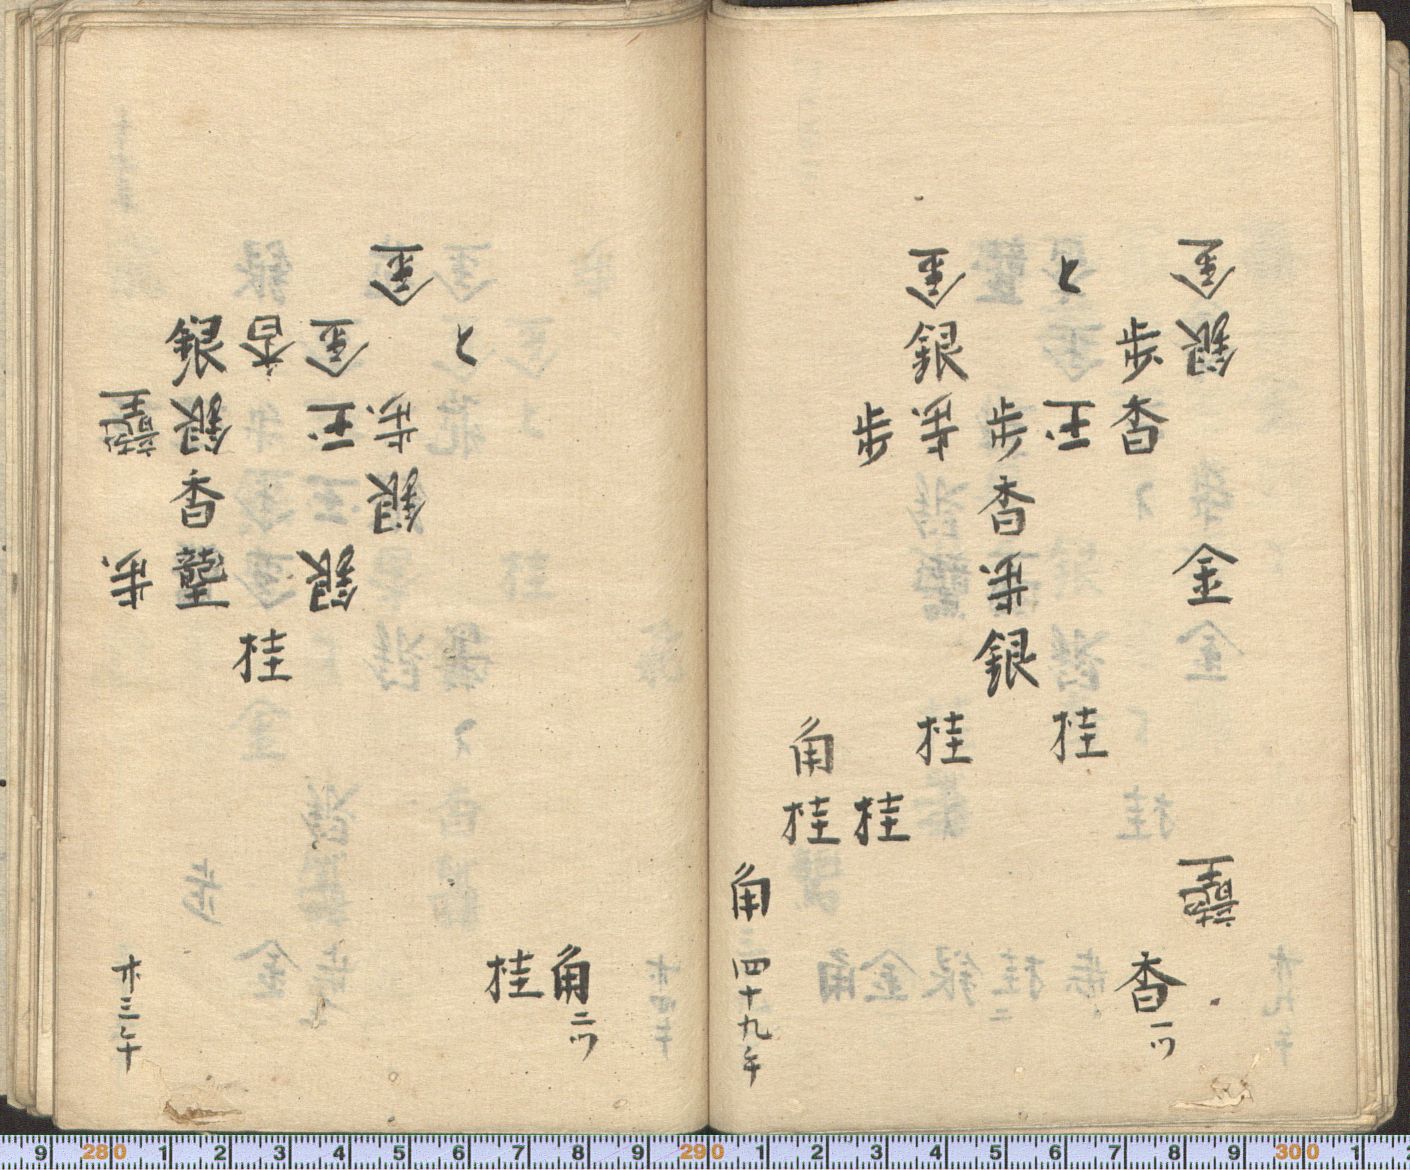 金銀金龍王
歩香
香一ツ
と王桂
歩香歩銀
金銀歩桂
歩桂
角桂
角
四十九手
角二ツ
桂
と
金歩銀
金王銀
香桂
銀銀香龍王
龍王歩
三手